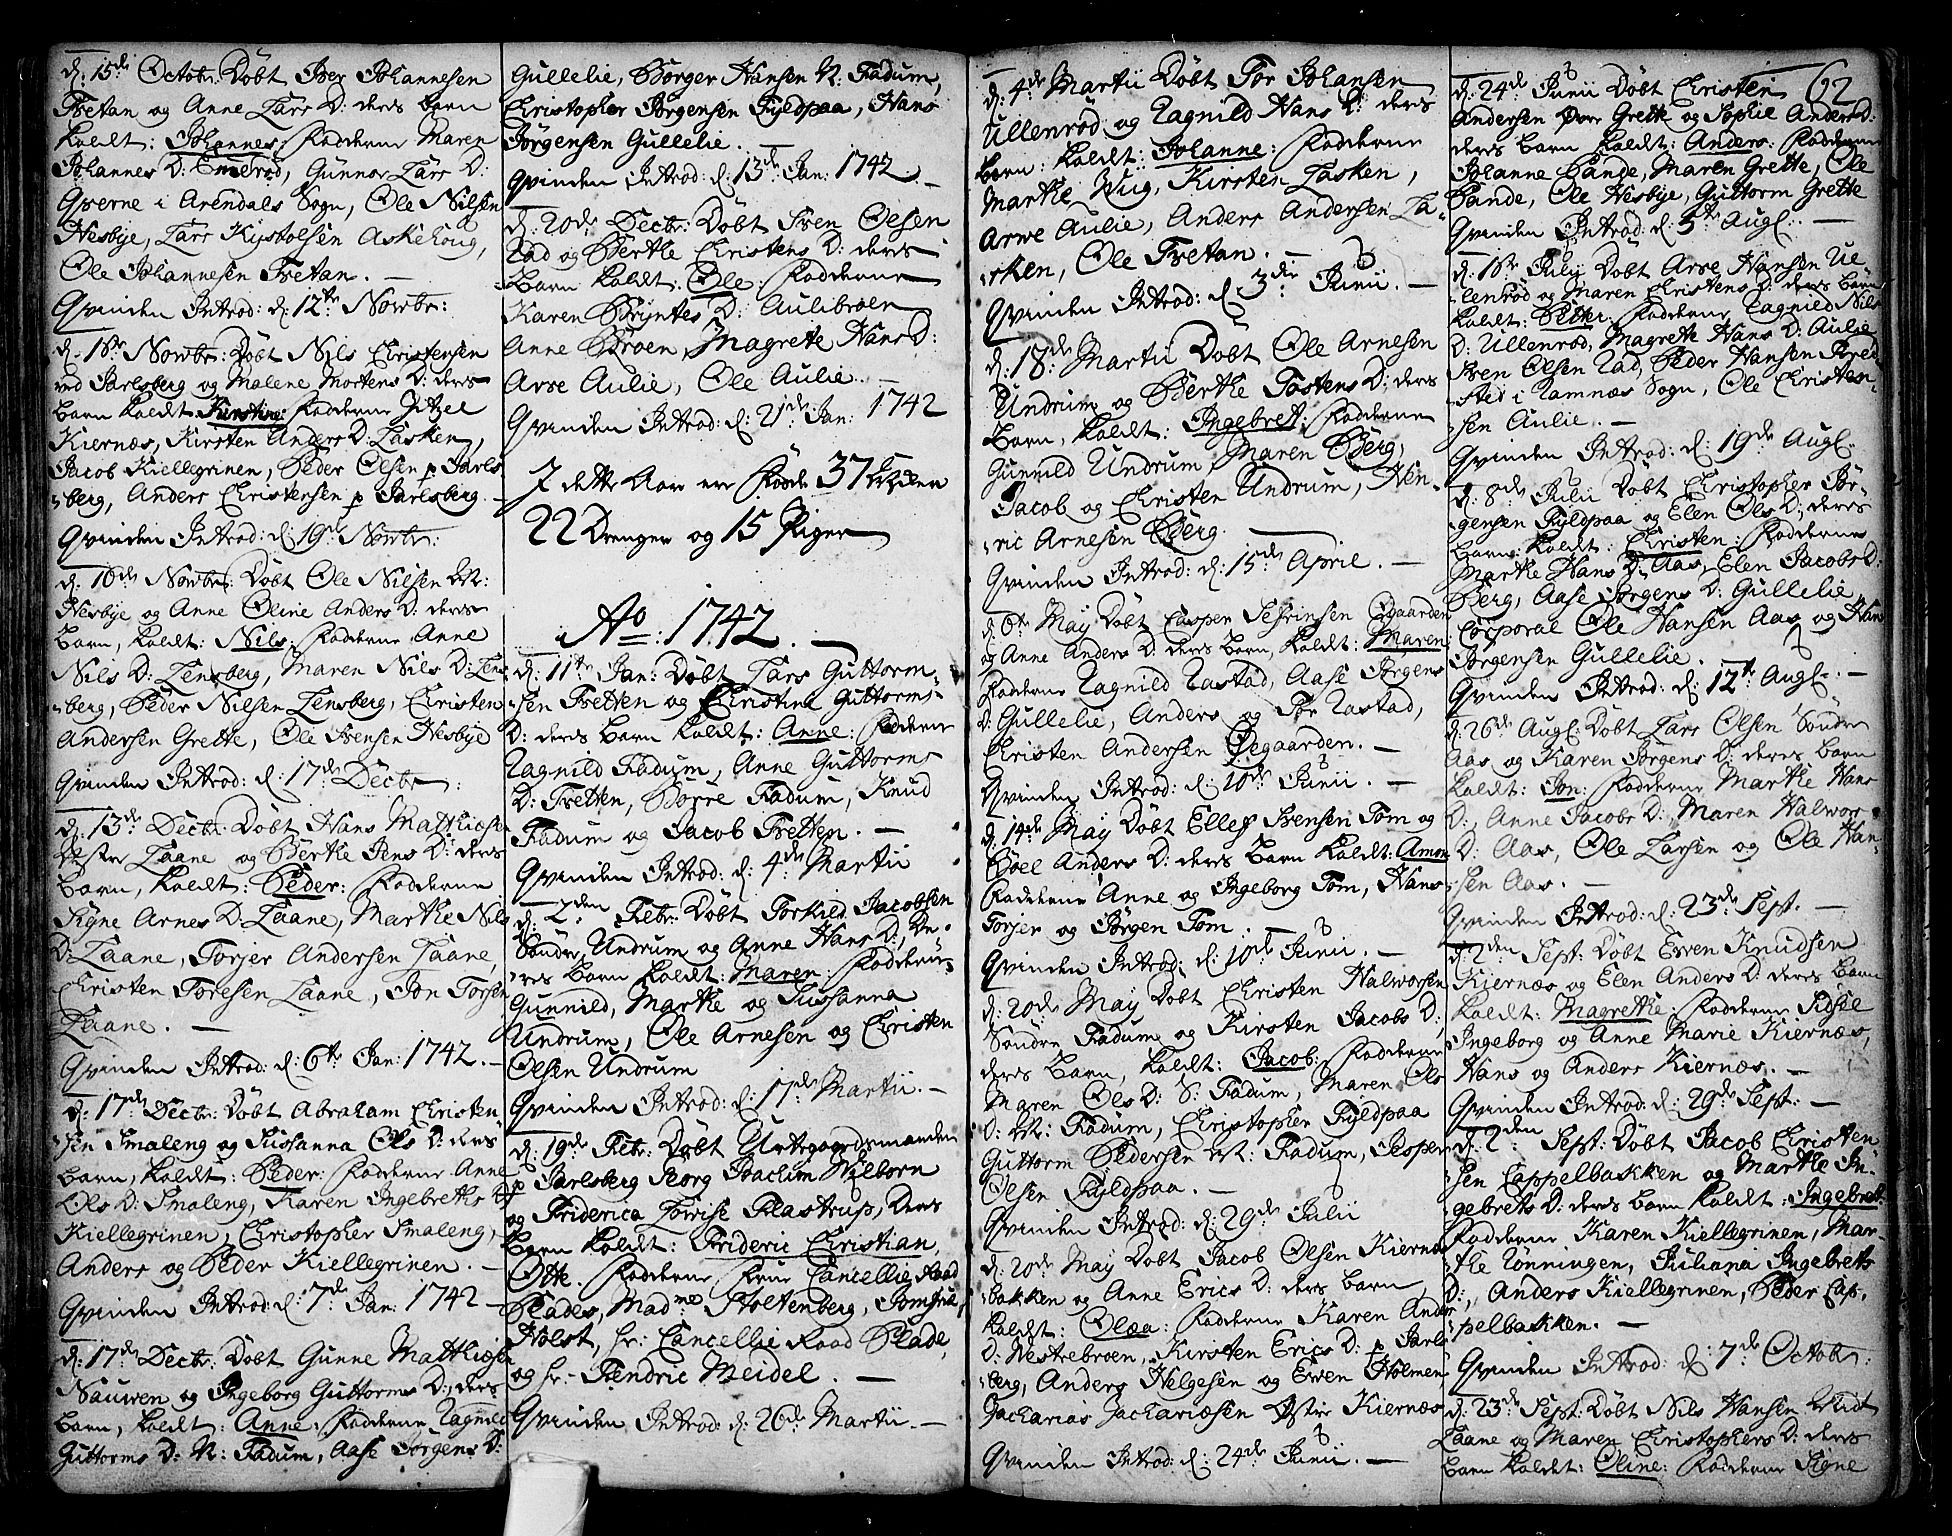 d. 15de Octobr: Døbt Iver Johannesen
Tretan og Anne Lars D: deres barn
kaldt: Johannes: Fadderne Maren
Johannes D: Enerød, Gunnor Lars D:
Qverne i Arendals Sogn, Ole Nilsen
Hesbye, Lars Kystolsen Askehoug,
Ole Johannesen Tretan. —
Qvinden Introd: d: 12te Novbr:
d. 1ste Novbr: Døbt Nils Christensen
ved Jarlsberg og Malene Mortens D: deres
barn kaldt Kirstine: Fadderne Zitzel
Kiernæs, Kirsten Anders D: Lasken,
Jacob Kiellegrinen, Peder Olsen p Jarls
-berg, Anders Christensen p Jarlsberg. —
Qvinden Introd: d: 19de Novbr:
d: 16de Novbr: Døbt Ole Nilsen
Hesbye og Anne Oline Anders D: deres
barn, kaldt: Nils, Fadderne Anne
Nils D: Lensberg, Maren Nils D: Lens
-berg, Peder Nilsen Lensberg, Christen
Andersen Grette, Ole Svensen Hesbye
Qvinden Introd: d: 17de Decbr:
d: 13de Decbr: Døbt Hans Matthiæsen
Vestre Laane og Berthe Jens D: deres
barn, kaldt: Peder: Fadderne
Signe Arnes D: Laane, Marthe Nils
D: Laane, Torjer Andersen Laane,
Christen Toresen Laane, Jon Torsen
Laane. —
Qvinden Introd: d: 6te Jan: 1742. —
d: 17de Decbr: Døbt Abraham Christen
-sen Smaleng og Susanna Ols D: deres
barn, kaldt: Peder: Fadderne Anne
Ols D: Smaleng, Karen Ingebreths D:
Kiellegrinen, Christopher Smaleng,
Anders og Peder Kiellegrinen. —
Qvinden Introd: d: 7de Jan: 1742 —
d: 17de Decbr: Døbt Gunne Matthiæsen
Nauwen og Ingeborg Guttorms D:, deres
barn, kaldt: Anne: Fadderne Ragnild
Guttorms D: N: Fadum, Aase Jørgens D:
Gullelie, Børger Hansen N: Fadum,
Christopher Jørgensen Fyldpaa, Hans
Jørgensen Gullelie. —
Qvinden Introd: d: 13de Jan: 1742. —
d: 20de Decbr: Døbt Sven Olsen
Rad og Berthe Christens D: deres
barn kaldt: Ole: Fadderne
Karen Bryntes D: Aulibroen
Anne Broen, Magrete Hans D:
Arve Aulie, Ole Aulie. —
Qvinden Introd: d: 21de Jan: 1742
I dette Aar ere Fødde 37
22 Drenger og 15 Piger
Ao: 1742. —
d: 11te Jan: Døbt Lars Guttorm-
-sen Tretten og Christina Guttorms
D: deres barn kaldt: Anne: Fadderne
Ragnild Fadum, Anne Guttorms
D: Tretten, Børre Fadum, Knud
Fadum og Jacob Tretten. —
Qvinden Introd: d: 4de Martii
d: 2den Febr: Døbt Torkild Jacobsen
Søndre Undrum og Anne Hans D:, de-
-res barn kaldt: Maren: Fadderne
Gunnild, Marthe og Susanna
Undrum, Ole Arnesen og Christen
Olsen Undrum
Qvinden Introd: d: 17de Martii. —
d: 19de Febr: Døbt Urtegaardsmanden
p Jarlsberg Georg Joachim Wilborn
og Friderica Lowise Flastrup, deres
barn kaldt: Frideric Christian
Otte. Fadderne Frue Cancellie Raad
Plades, Madme Stoltenberg, Jomfrue
Holst, hr: Cancellie Raad Plade,
og hr: Fendric Meidel. —
Qvinden Introd: d: 26de Martii. —
d: 4de Martii Døbt Tor Johansen
Ullenrød og Ragnild Hans D: deres
barn: kaldt: Johanne: Fadderne
Marthe Wug, Kirsten Lasken,
Arwe Aulie, Anders Andersen La-
-rken, Ole Tretan. —
Qvinden Introd: d. 3die Junii. —
d: 18de Martii Døbt Ole Arnesen
Undrum og Berthe Tostens D: deres
barn, kaldt: Ingebret: Fadderne
Gunnild Undrum, Maren Berg,
Jacob og Christen Undrum, Hen-
-ric Arnesen Berg. —
Qvinden Introd: d: 15de April. —
d: 6te May Døbt Casper Sefrinsen Øgaarden
og Anne Anders D: deres barn, kaldt: Maren:
Fadderne Ragnild Rastad, Aase Jørgens
D: Gullelie, Anders og Tor Rastad,
Christen Andersen Øegaarden. —
Qvinden Introd: d: 10de Junii. —
d: 14de May Døbt Ellef Svensen Tom og
Boel Anders D: deres barn kaldt: Amon
Fadderne Anne og Ingeborg Tom, Hans
Torjer og Jørgen Tom. —
Qvinden Introd: d: 10de Junii. —
d: 20de May Døbt Christen Halworsen
Søndre Fadum og Kirsten Jacobs D:
deres barn, kaldt: Jacob: Fadderne
Maren Ols D: S: Fadum, Maren Ols
D: Fadum, Christopher Fyldpaa
Guttorm Pedersen Fadum, Jesper
Olsen Fyldpaa. —
Qvinden Introd: d: 29de Julii
d: 20de May Døbt Jacob Olsen Kiernæs
bakken og Anne Erics D: deres barn
kaldt: Olæa: Fadderne Karen Anders
D: Westrebroen, Kirsten Erics D: p Jarls
-berg, Anders Helgesen og Ewen Holmen
Zacharias Zachariæsen Østre Kiernæs
Qvinden Introd: d: 24de Junii. —
62
d: 24de Junii Døbt Christen
Andersen Øvre Grette og Sophie Anders D:
deres barn kaldt: Anders: Fadderne
Johanne Sande, Maren Grette, Ole
Sande, Ole Hesbye, Guttorm Grette
Qvinden Introd: d: 5te Augl: —
d: 1ste Julii Døbt Arve Hansen Ul
-lenrød og Maren Christens D: deres barn
kaldt: Petter: Fadderne Ragnild Nils
D: Ullenrød, Magrethe Hans D: Aulie
Sven Olsen Rad, Peder Hansen Bred
-sted i Ramnæs Sogn, Ole Christen-
sen Aulie. —
Qvinden Introd: d: 19de Augl. —
d: 8de Julii Døbt Christopher Jør-
gensen Fyldpaa og Elen Ols D: deres
barn: kaldt: Christen: Fadderne
Marthe Hans D: Aas, Elen Jacobs D:
Berg, Aase Jørgens D: Gullelie,
Corporal Ole Hansen Aas og Hans
Jørgensen Gullelie. —
Qvinden Introd: d: 12te Augl. —
d: 26de Augl: Døbt Lars Olsen Søndre
Aas og Karen Jørgens D: deres barn
kaldt: Jon: Fadderne Marthe Hans
D:, Anne Jacobs D:, Maren Halwors
D: Aas, Ole Larsen og Ole Han-
-sen Aas. —
Qvinden Introd: d: 23de Sept. —
d: 2den Sept: Døbt Ewen Knudsen
Kiernæs og Elen Anders D: deres barn
kaldt: Magrethe: Fadderne Sidsele
Ingeborg og Anne Marie Kiernæs,
Hans og Anders Kiernæs. —
Qvinden Introd: d: 29de Sept: —
d: 2den Sept: Døbt Jacob Christen
-sen Cappelbakken og Marthe In-
gebrets D: deres barn kaldt: Ingebret:
Fadderne Karen Kiellegrinen, Mar-
the Rønningen, Juliana Ingebrets
D:, Anders Kiellegrinen, Peder Cap-
-pelbakken. —
Qvinden Introd: d: 7de Octobr:
d: 23de Sept: Døbt Nils Hansen
Laane og Maren Christophers D: deres
barn kaldt: Oline: Fadderne Signe